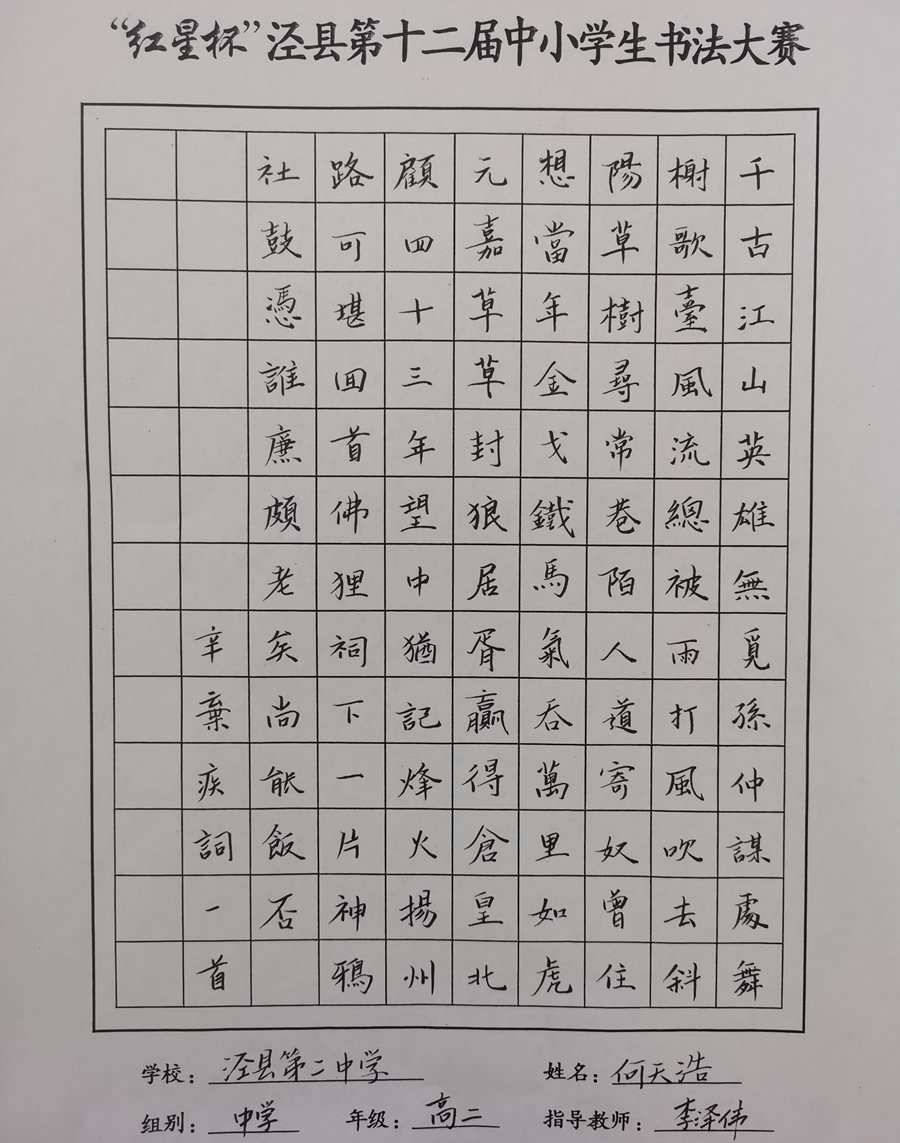 “红星杯”泾县第十二届中小学生书法大赛
千古江山英雄無覓孫仲謀處舞
榭歌臺風流總被雨打風吹去斜
陽草樹尋常巷陌人道寄奴曾住
想當年金戈鐵馬氣吞萬里如虎
元嘉草草封狼居胥贏得倉皇北
顧四十三年望中猶記烽火揚州
路可堪囬首佛狸祠下一片神鴉
社鼓憑誰廉頗老矣尚能飯否
辛棄疾詞一首
学校：泾县第二中学 姓名：何天浩
组别：中学 年级：高二 指导教师：李泽伟